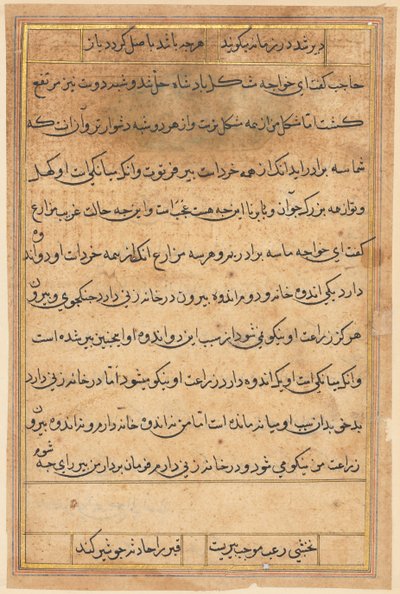 دیر شد در زمانه بکویند هرچه باشد باصل کردد باز
حاجب کفت ای خواجه مشکل بادشاه حل شد و شبه دوت نیز مرتفع
کشت اما مشکل من از همه مشکل ترست و از هر دو شبه دشوارتر و آن آنست که
شما سه برادراید انک از همه خردست پیر فرتوت و انک میانکی است او کهل
و تو از همه بزرک جوان و برنا این چه هست عجب است و این چه حالت غریب مزارع
کفت ای خواجه ما سه برادریم و هر سه مزارع انک از همه خردست او دو اندوه
دارد یکی اندوه خانه و دوم اندوه بیرون در خانه زنی دارد جنکجوی و بیرون
هرکز زراعت او نیکو نمی شود از سبب این دو اندوه او اینچنین پیر شده است
و انک میانکی است او یک اندوه دارد زراعت او نیکو میشود اما در خانه زنی دارد
بدخوی بدان سبب او میانه مانده است اما من نه اندوه خانه دارم و نه اندوه بیرون
زراعت من نیکو می شود و در خانه زنی دارم فرمان بردار من پیر برای چه شوم
نخشبی رعب موجب پیریست قیر را حادثه چو شیر کند